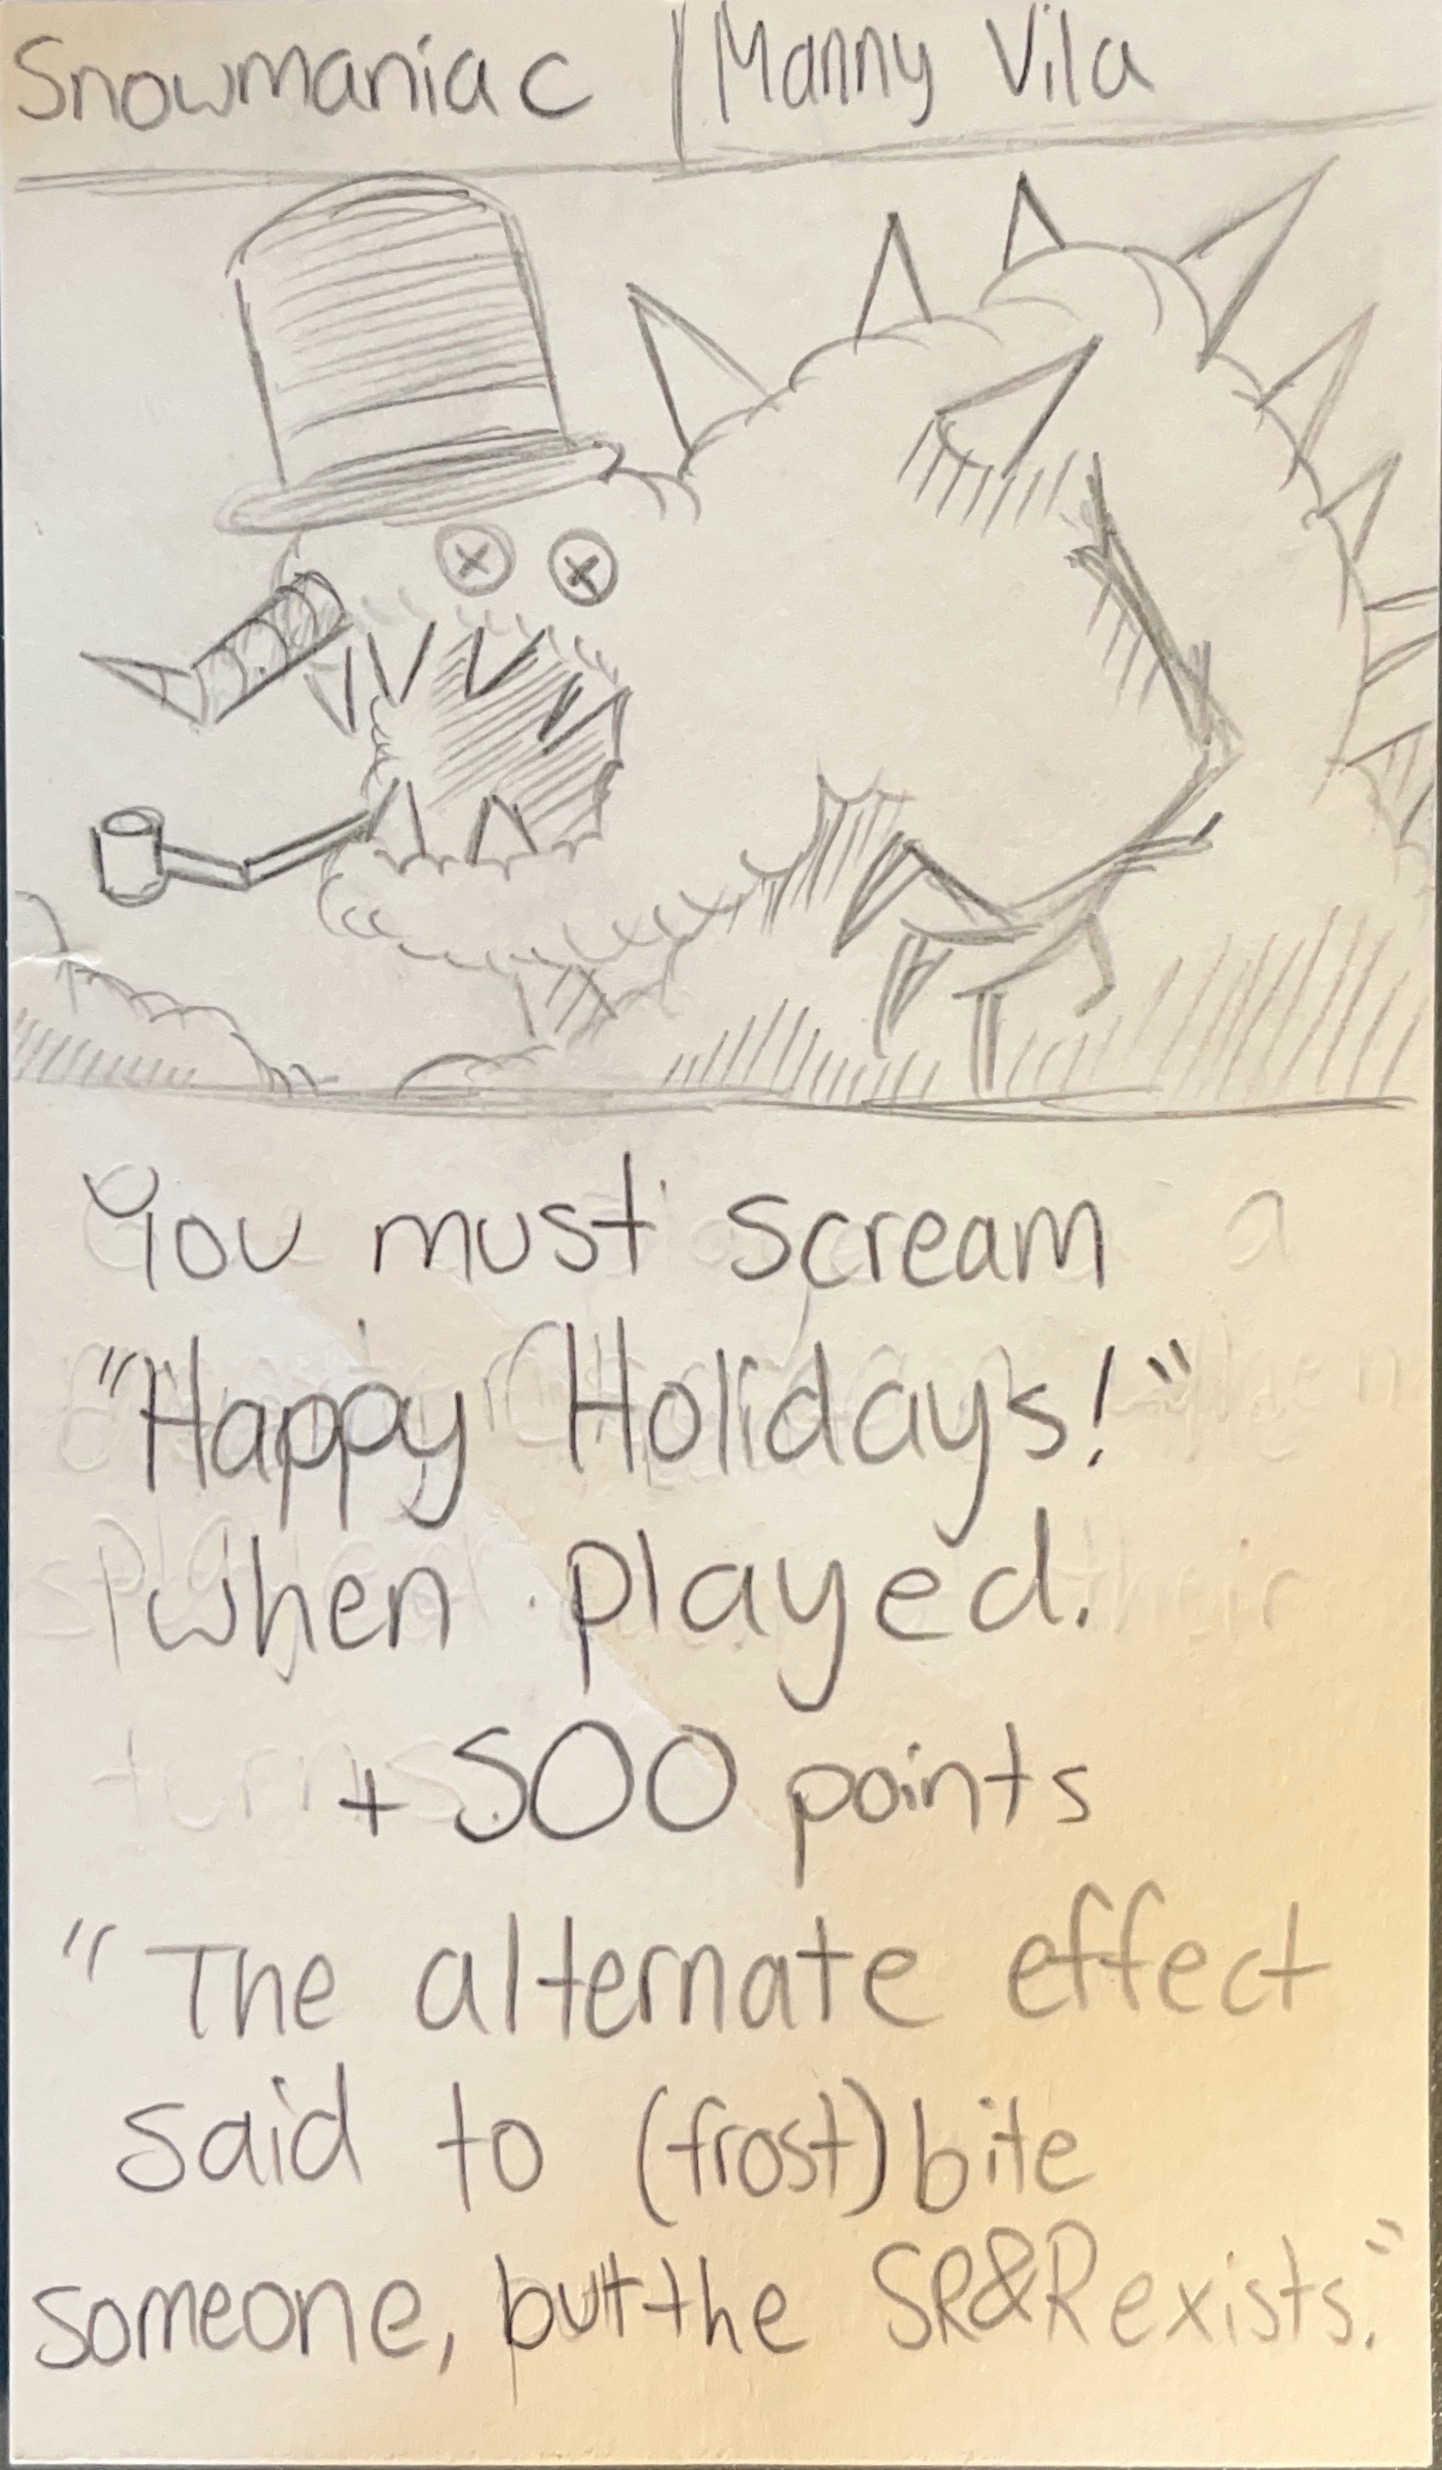 Snowmaniac | Manny Vila
You must scream
"Happy Holidays!"
when played.
+500 points
"The alternate effect
said to (frost)bite
someone, but the SR&R exists."